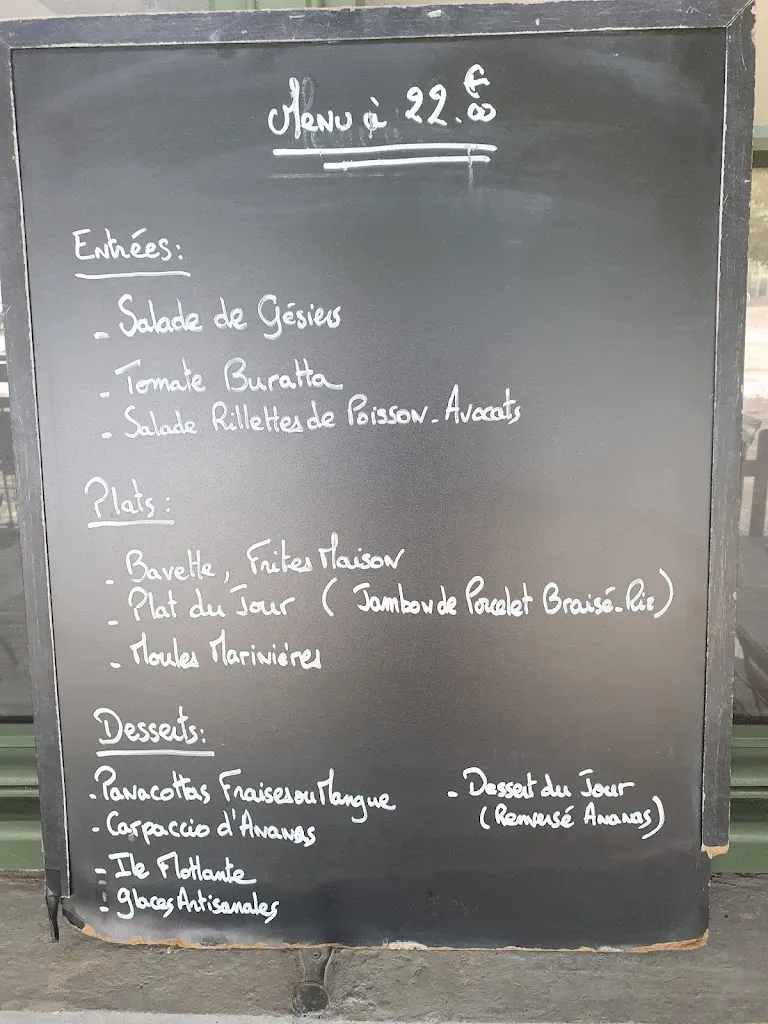 Menu à 22.€00
Entrées:
- Salade de Gésiers
- Tomate Buratta
- Salade Rillettes de Poisson - Avocats
Plats:
- Bavette, Frites Maison
- Plat du Jour ( Jambon de Porcelet Braisé - Riz )
- Moules Marinières
Desserts:
- Panacottas Fraises ou Mangue
- Carpaccio d'Ananas
- Ile Flottante
- Glaces Artisanales
- Dessert du Jour
( Renversé Ananas )